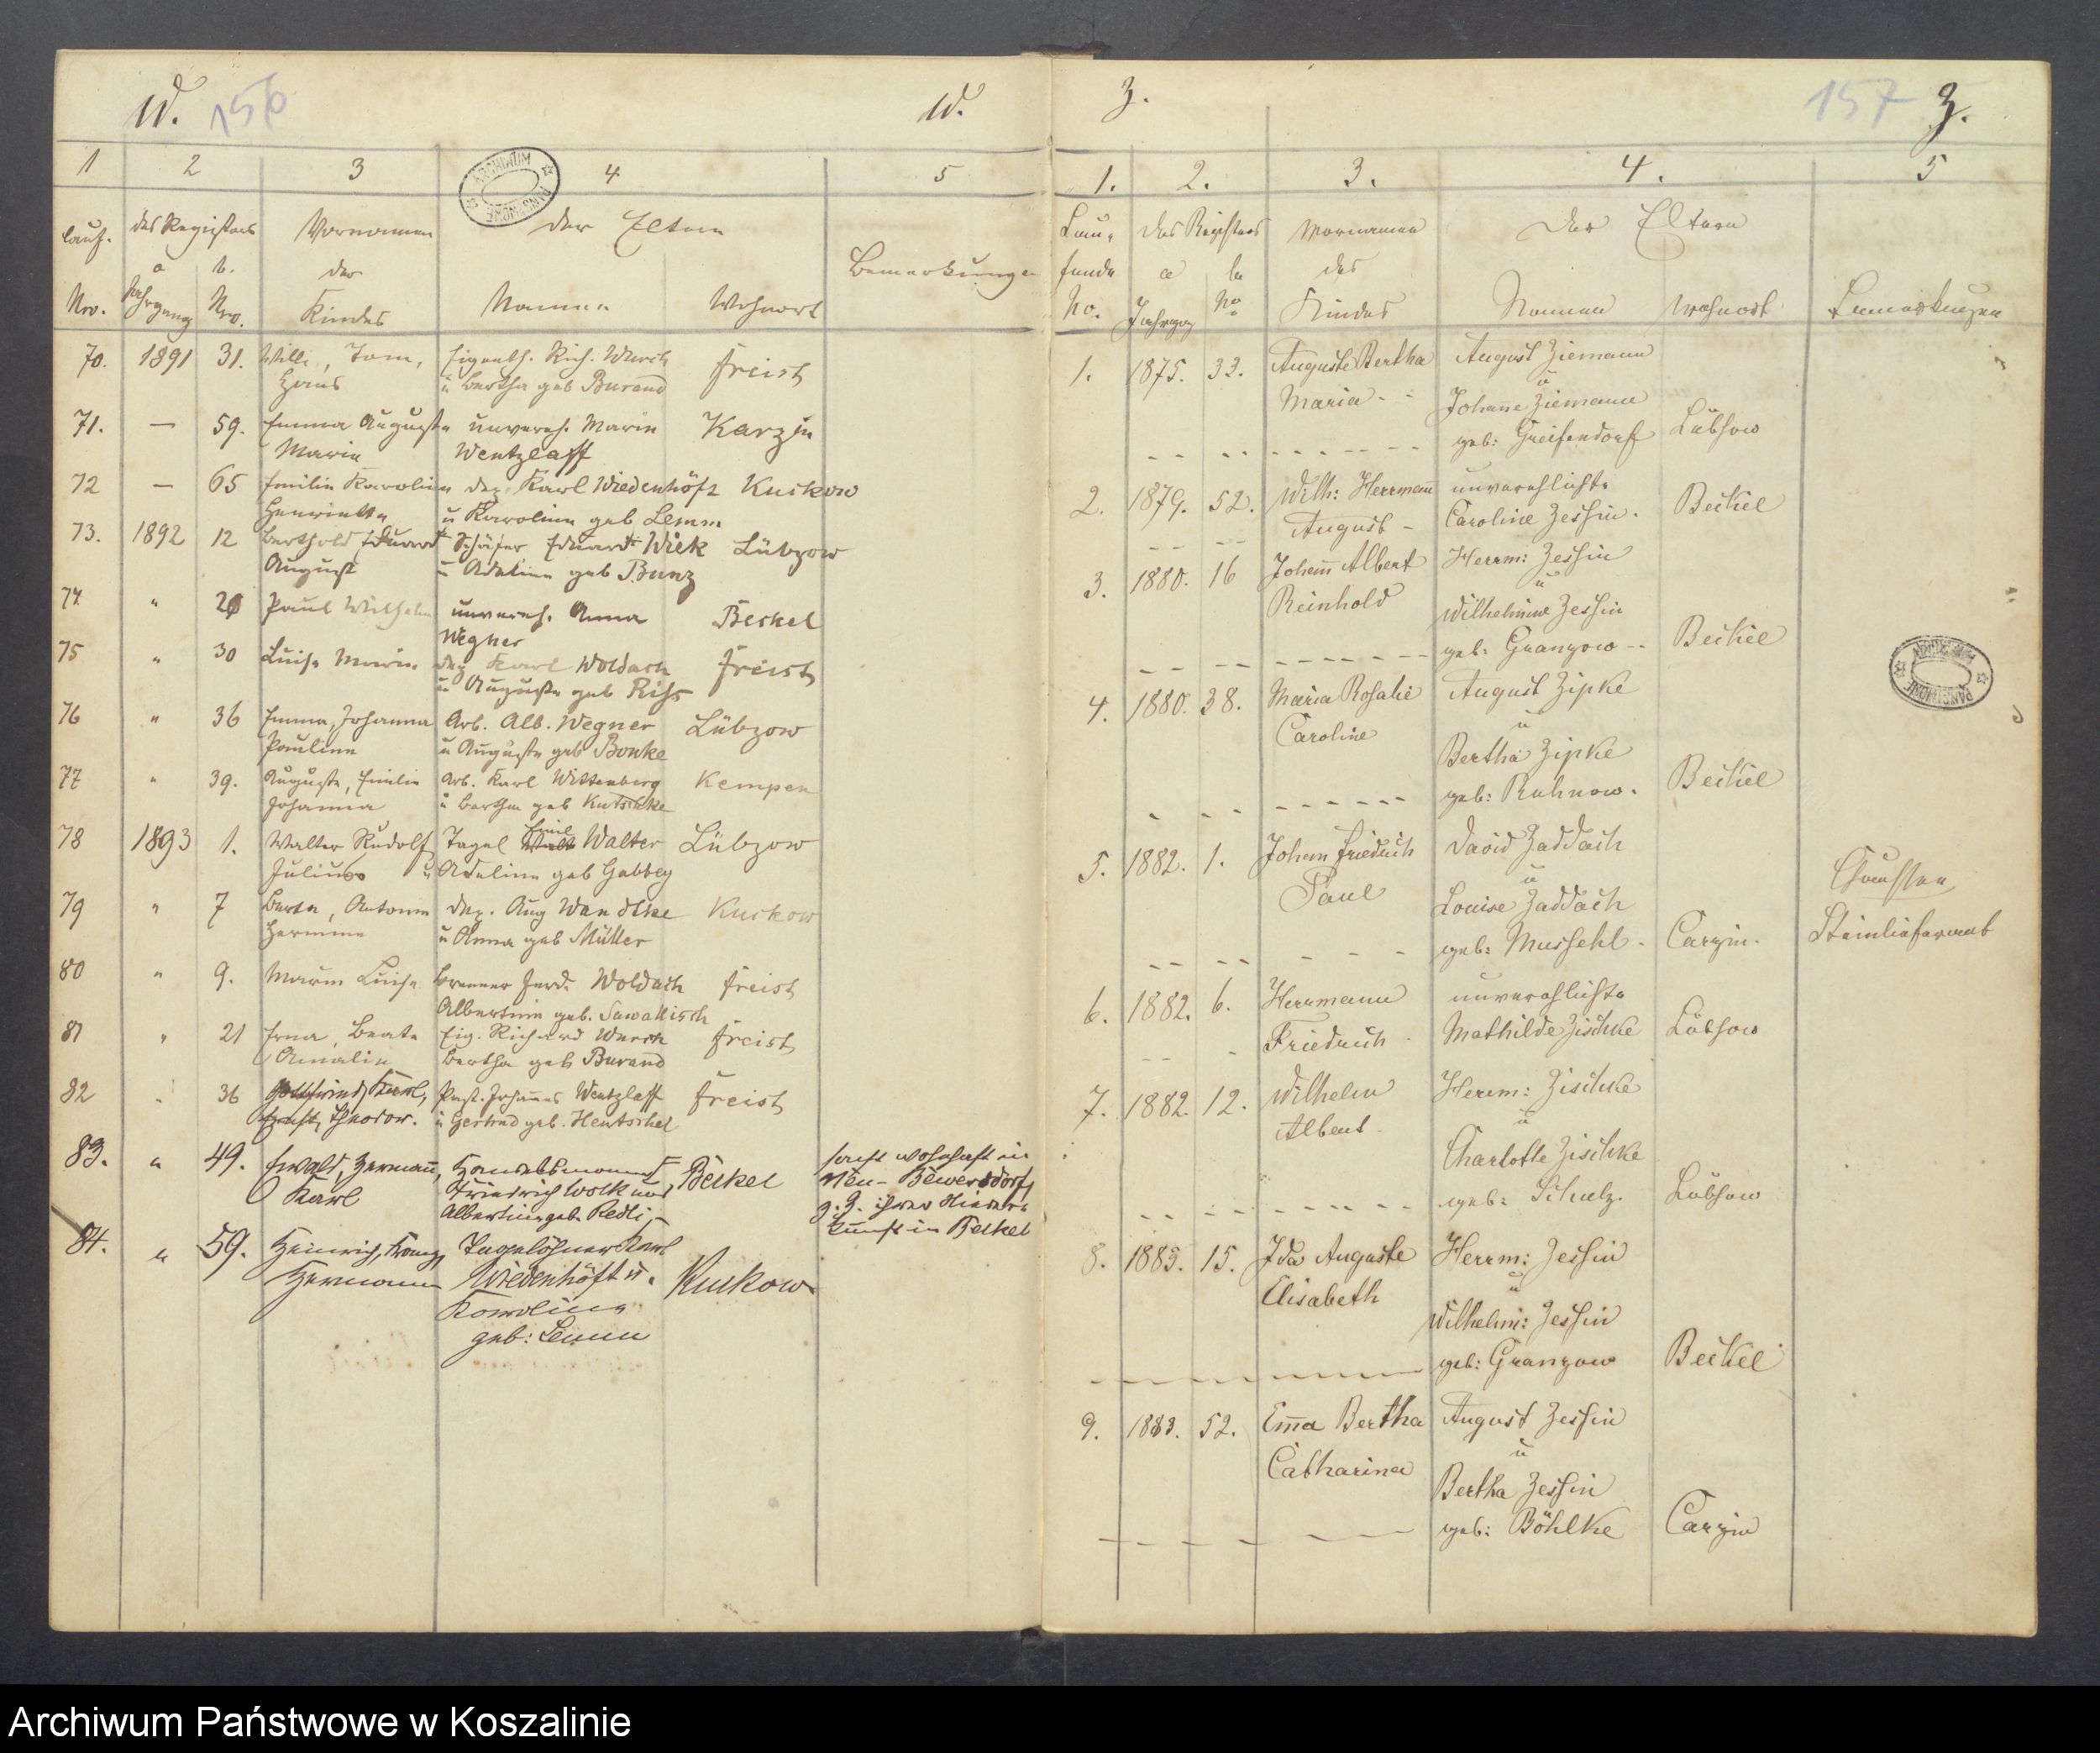 W. 156 W.
1 2 3 4 5
lauf. des Registers Vornamen der Eltern
a b. der Bemerkungen
Nro. Jahrgang Nro. Kindes Namen Wohnort
70. 1891 31. Willi, Tom, Eigenth. Rich. Wursch Freist
Hans u Bertha geb Burand
71. — 59. Emma Auguste unvereh. Marie Karzin
Marie Wentzlaff
72 — 65 Emilie Karoline Karl Wiedenhöft Kuskow
Henriette u Karoline geb Lemm
73. 1892 12 Berthold, Eduard Schäfer Eduard Wiek Lübzow
August u Adeline geb Bunz
74 " 20 Paul Wilhelm unvereh. Anna Beckel
Wegner
75 " 30 Luise Marie Karl Woldach Freist
u Auguste geb
76 " 36 Emma, Johanna Arb. Alb. Wegner Lübzow
Pauline u Auguste geb Bonke
77 " 39. Auguste, Emilie Arb. Karl Wittenberg Kempen
Johanna u Bertha geb Kutschke
78 1893 1. Walter Rudolf Tagel Emil Walter Lübzow
Julius u Adeline geb Gabbey
79 " 7 Berta, Antonie Aug Wandtke Kuskow
Hermine u Anna geb Müller
80 " 9. Marie Luise Brenner Ferd. Woldach Freist
Albertine geb. Sawallisch
81 " 21 Erna, Beate Eig. Richard Wursch Freist
Amalie Bertha geb Burand
82 " 36 Gottfried, Karl, Past. Johannes Wentzlaff Freist
Ernst, Theodor. u Gertrud geb. Hentschel
83. " 49. Ewald, Hermann, Handelsmann Beckel sonst wohnhaft in
Karl Friedrich Wolk und Neu-Bewersdorf,
Albertine geb. Redli z. Z. ihrer Nieder-
kunft in Beckel
84. " 59. Heinrich, Franz, Tagelöhner Karl
Hermann Wiedenhöft u. Kuskow
Karoline
geb: Lemm
Z. 157 Z.
1. 2. 3. 4. 5
Lau- des Registers Vornamen Der Eltern
fende a b des
No. Jahrgang No Kindes Namen Wohnort Bemerkungen
1. 1875. 33. Auguste Bertha August Ziemann
Maria u
Johanne Ziemann
geb: Greifendorf Lübsow
2. 1879. 52. Wilh: Herrmann unverehlichte
August Caroline Zessin. Beckel
3. 1880. 16 Johann Albert Herrm: Zessin
Reinhold u
Wilhelmine Zessin
geb: Granzow Beckel
4. 1880. 38. Maria Rosalie August Zipke
Caroline u
Bertha Zipke
geb: Ruhnow. Beckel
5. 1882. 1. Johann Friedrich David Zaddach
Paul u
Louise Zaddach Chaussee
geb: Mussehl Carzin. Steinlieferant
6. 1882. 6. Herrmann unverehlichte
Friedrich Mathilde Zischke Lübsow
7. 1882. 12. Wilhelm Herrm: Zischke
Albert u
Charlotte Zischke
geb: Schulz. Lübsow
8. 1883. 15. Ida Auguste Herrm: Zessin
Elisabeth u
Wilhelmi: Zessin
geb: Granzow Beckel
9. 1883. 52. Emma Bertha August Zessin
Catharina u
Bertha Zessin
geb: Böhlke Carzin
Archiwum Państwowe w Koszalinie